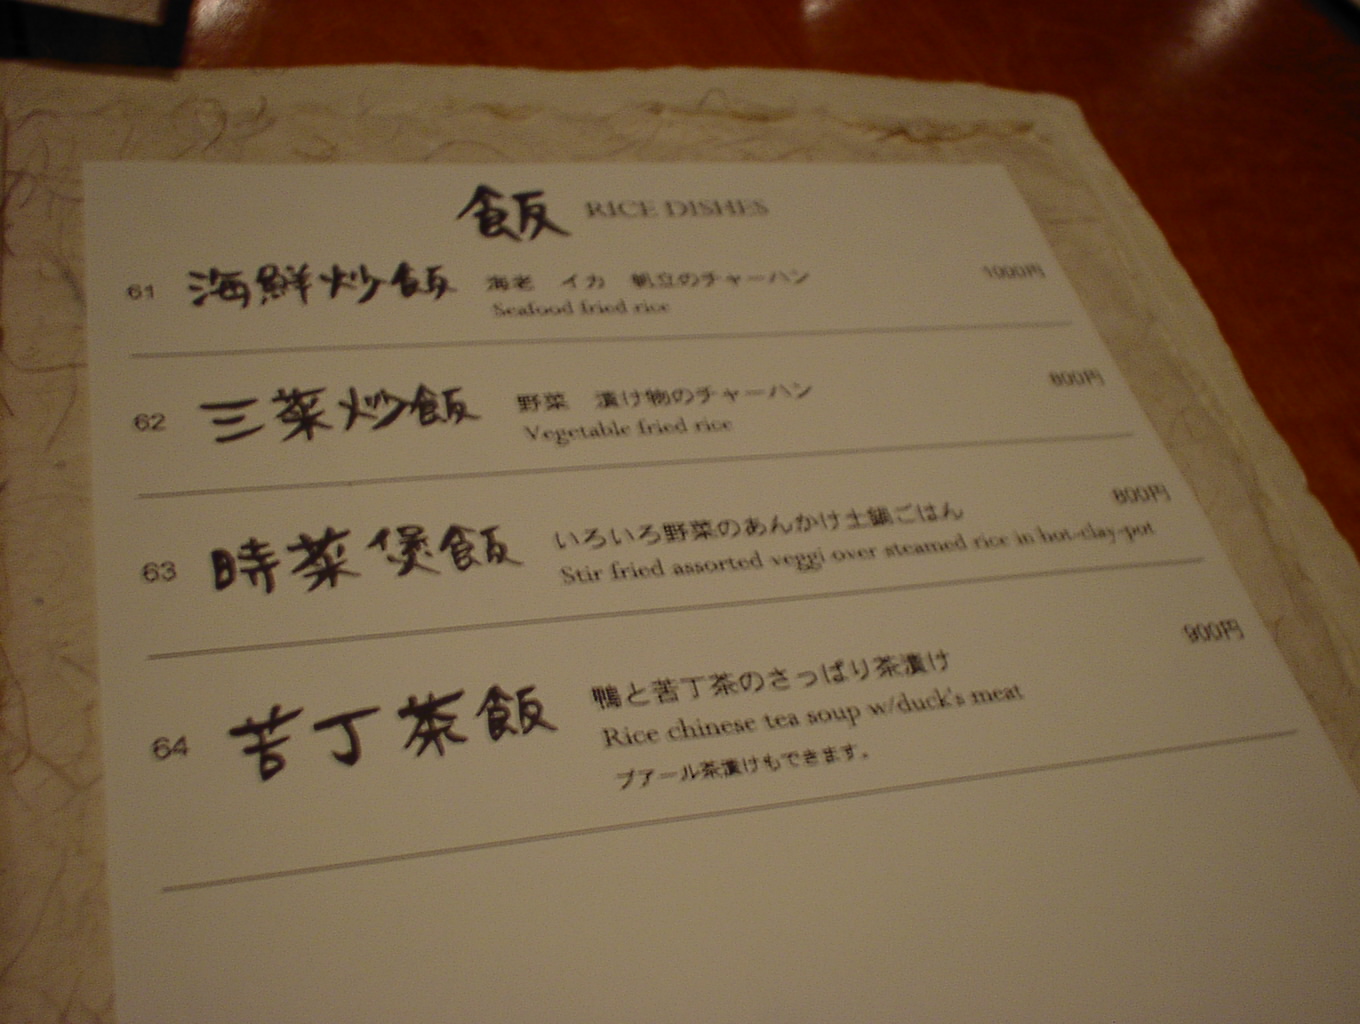 飯 RICE DISHES
61 海鮮炒飯 海老 イカ 帆立のチャーハン 1000円
Seafood fried rice
62 三菜炒飯 野菜 漬け物のチャーハン 800円
Vegetable fried rice
63 時菜煲飯 いろいろ野菜のあんかけ土鍋ごはん 800円
Stir fried assorted veggi over steamed rice in hot-clay-pot
64 苦丁茶飯 鴨と苦丁茶のさっぱり茶漬け 900円
Rice chinese tea soup w/duck's meat
プアール茶漬けもできます。